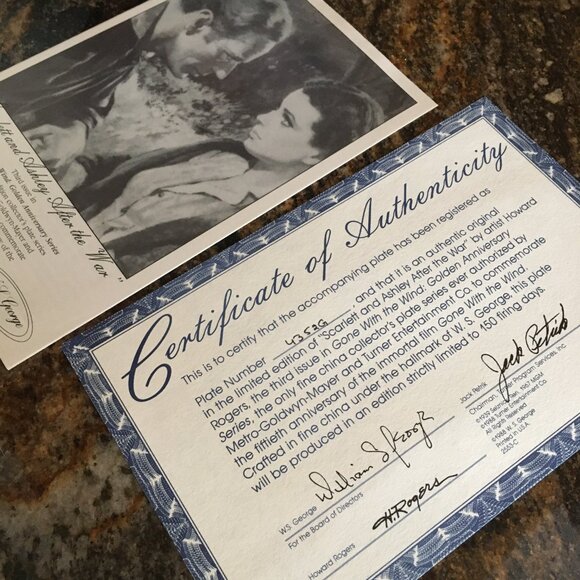 ett and Ashley After the War"
Third issue in
Golden Anniversary Series
George
Certificate of Authenticity
This is to certify that the accompanying plate has been registered as
Plate Number 4353G and that it is an authentic original
in the limited edition of "Scarlett and Ashley After the War" by artist Howard
Rogers, the third issue in Gone With the Wind: Golden Anniversary
Series, the only fine china collector's plate series ever authorized by
Metro-Goldwyn-Mayer and Turner Entertainment Co. to commemorate
the fiftieth anniversary of the immortal film Gone With the Wind.
Crafted in fine china under the hallmark of W. S. George, this plate
will be produced in an edition strictly limited to 150 firing days.
W.S. George
For the Board of Directors
H. Rogers
Howard Rogers
Jack Petrik
Jack Petrik
Chairman, Turner Program Services, Inc.
©1939 Selznick ren. 1967 MGM
©1988 Turner Entertainment Co.
All Rights Reserved
©1988 W. S. George
Printed in U.S.A.
2553-C